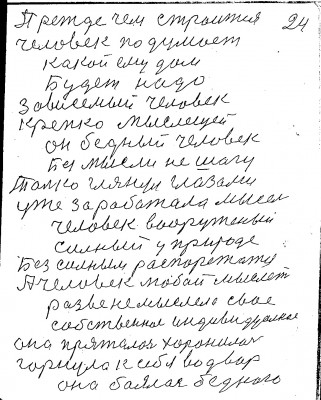 Прежде чем строится 24
человек подумает
какой ему дом
Будет надо
Зависемый человек
Крепко мыслещей
он бедный человек
Без мысли не шагу
Толко глянул глазами
уже заработала мысел
человек вооруженый
силный у природе
Без силным распоряжат
А человек мыслет
разве немыслело свое
собственное индивидуалное
она пряталас хоронилас
горнула к себя во двор
она баялас бедного